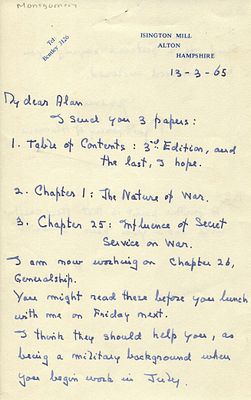 Montgomery
Tel:
Bentley 3126
ISINGTON MILL
ALTON
HAMPSHIRE
13-3-65
My dear Alan
I send you 3 papers:
1. Table of Contents: 3rd Edition, and
the last, I hope.
2. Chapter 1: The Nature of War.
3. Chapter 25: Influence of Secret
Service on War.
I am now working on Chapter 26,
Generalship.
You might read these before you lunch
with me on Friday next.
I think they should help you, as
being a military background when
you begin work in July.